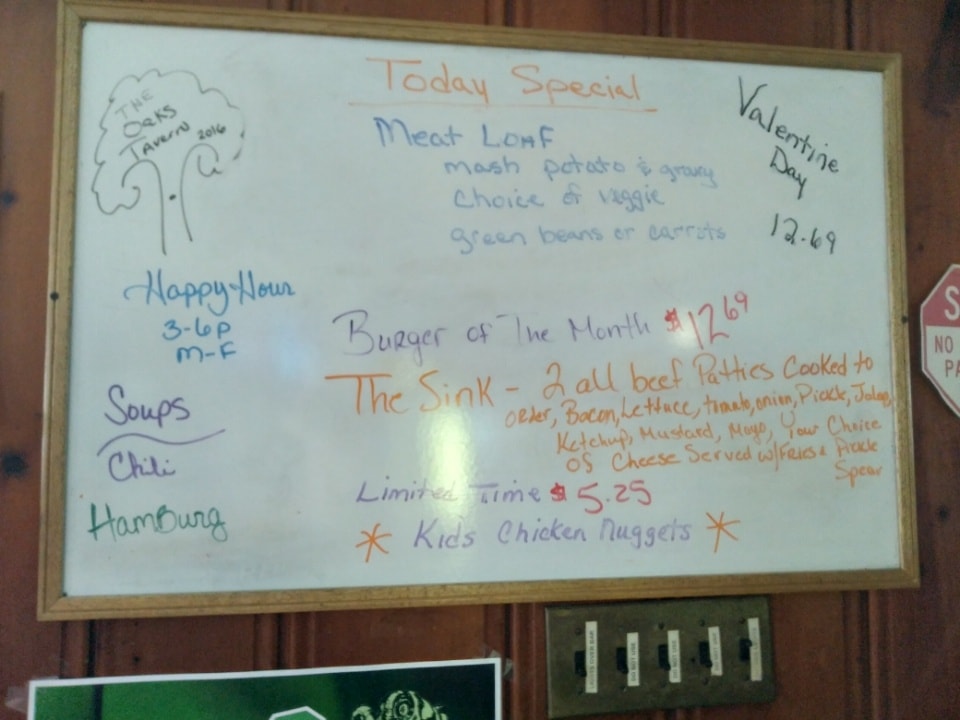 THE
OAKS
Tavern 2016
Today Special
Meat Loaf
mash potato & gravy
choice of veggie
green beans or carrots
Valentine
Day
12.69
Happy Hour
3-6p
M-F
Soups
Chili
HamBurg
Burger of The Month $12.69
The Sink - 2 all beef Patties Cooked to
order, Bacon, Lettuce, tomato, onion, Pickle, Jalap
Ketchup, Mustard, Mayo, Your Choice
Of Cheese Served w/Fries & Pickle
Spear
Limited Time $5.25
* Kids Chicken Nuggets *
S
NO
PA
DO NOT USE
DO NOT USE